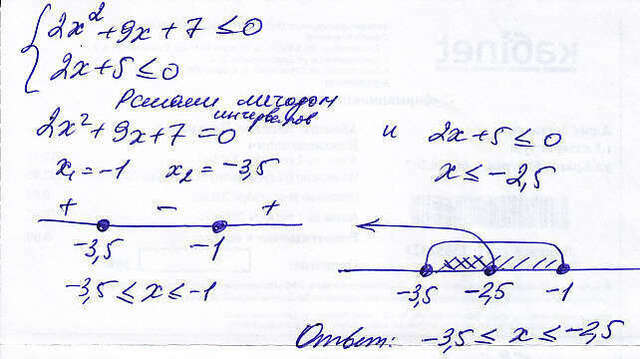 2x² + 9x + 7 ≤ 0
2x + 5 ≤ 0
Решаем методом интервалов
2x² + 9x + 7 = 0 и 2x + 5 ≤ 0
x₁ = -1 x₂ = -3,5 x ≤ -2,5
+ - +
-3,5 -1
-3,5 -2,5 -1
-3,5 ≤ x ≤ -1
Ответ: -3,5 ≤ x ≤ -2,5
кабinet